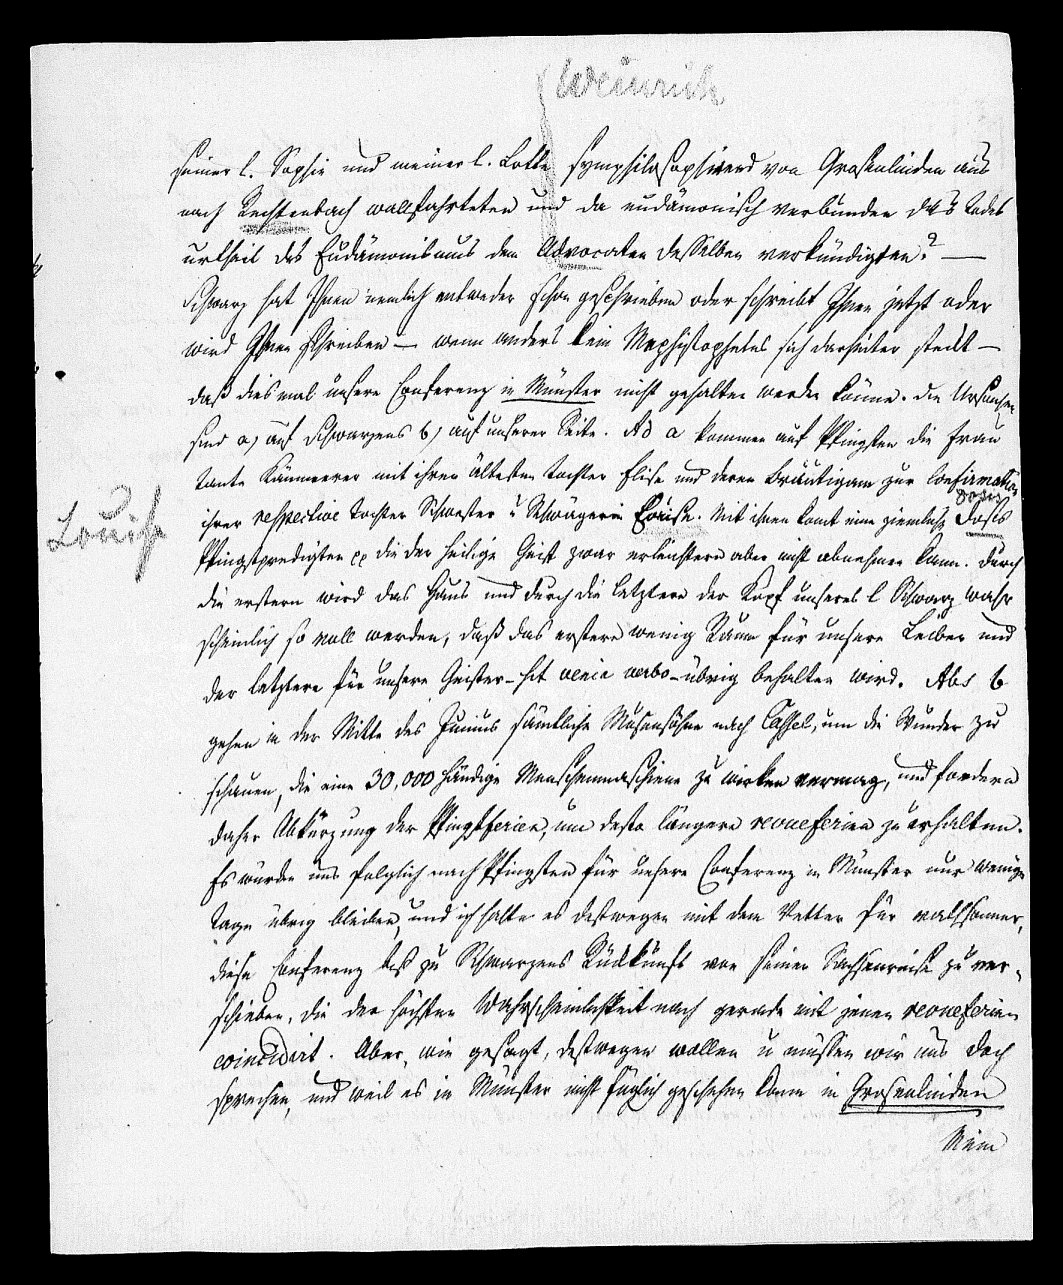 Weinrich
seiner l. Sophie und meiner l. Lotte symphilosophirend von Grosenlinden aus
nach Rechtenbach wallfahrteten und da eudämonisch verbunden das Todes
urtheil des Eudämonismus dem Advocaten desselben verkündigten? —
Schwarz hat Ihnen nemlich entweder schon geschrieben oder schreibt Ihnen jetzt oder
wird Ihnen schreiben — wenn anders kein Mephistopheles sich darhinter steckt —
daß diesmal unsere Conferenz in Münster nicht gehalten werden könne. Die Ursachen
sind a) auf Schwarzens b) auf unserer Seite. Ad a kommen auf Pfingsten die Frau
Tante Kämmerer mit ihrer ältesten Tochter Elise und deren Bräutigam zur Confirmation
ihrer respective Tochter Schwester u Schwägerin Louise. Mit ihnen komt eine ziemliche Dosis
Dosis
Louise
Pfingstpredigten pp die der heilige Geist zwar erleuchtern aber nicht abnehmen kann. Durch
die erstern wird das Haus und durch die letztern der Kopf unseres l Schwarz wahr
scheinlich so voll werden, daß das erstere wenig Raum für unsere Leiber und
der letztere für unsere Geister – sit venia verbo – übrig behalten wird. Ads b
gehen in der Mitte des Junius sämtliche Musensöhne nach Cassel, um die Wunder zu
schauen, die eine 30,000 händige Menschenmaschiene zu wirken vermag, und fordern
daher Abkürzung der Pfingstferien, um desto längere revueferien zu erhalten.
Es würden uns folglich nach Pfingsten für unsere Conferenz in Münster nur wenige
Tage übrig bleiben, und ich halte es deswegen mit dem Vetter für rathsamer,
diese Conferenz bis zu Schwarzens Rückkunft von seiner Sachsenreise zu ver-
schieben, die der höchsten Wahrscheinlichkeit nach gerade mit jenen revueferien
coincidirt. Aber, wie gesagt, deswegen wollen u müssen wir uns doch
sprechen, und weil es in Münster nicht füglich geschehen kann in Grosenlinden